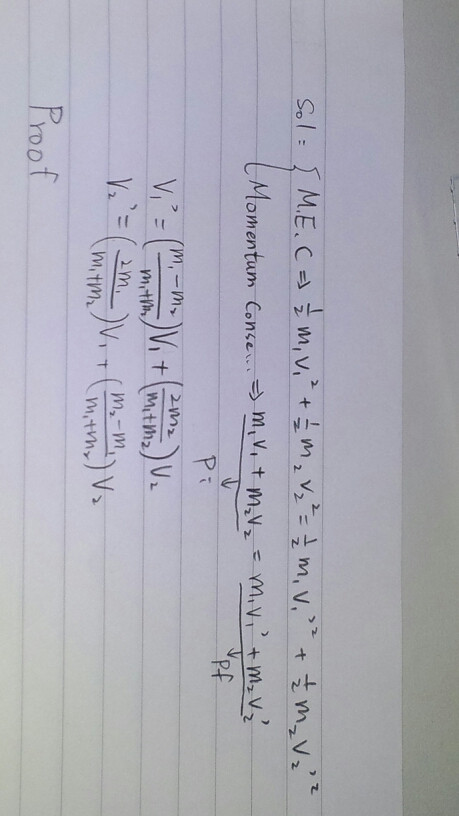 Sol = { M.E.C ⇒ ½ m₁v₁² + ½ m₂v₂² = ½ m₁v₁'² + ½ m₂v₂'²
{ Momentum Conse... ⇒ m₁v₁ + m₂v₂ = m₁v₁' + m₂v₂'
Pi Pf
V₁' = (m₁-m₂/m₁+m₂)V₁ + (2m₂/m₁+m₂)V₂
V₂' = (2m₁/m₁+m₂)V₁ + (m₂-m₁/m₁+m₂)V₂
Proof